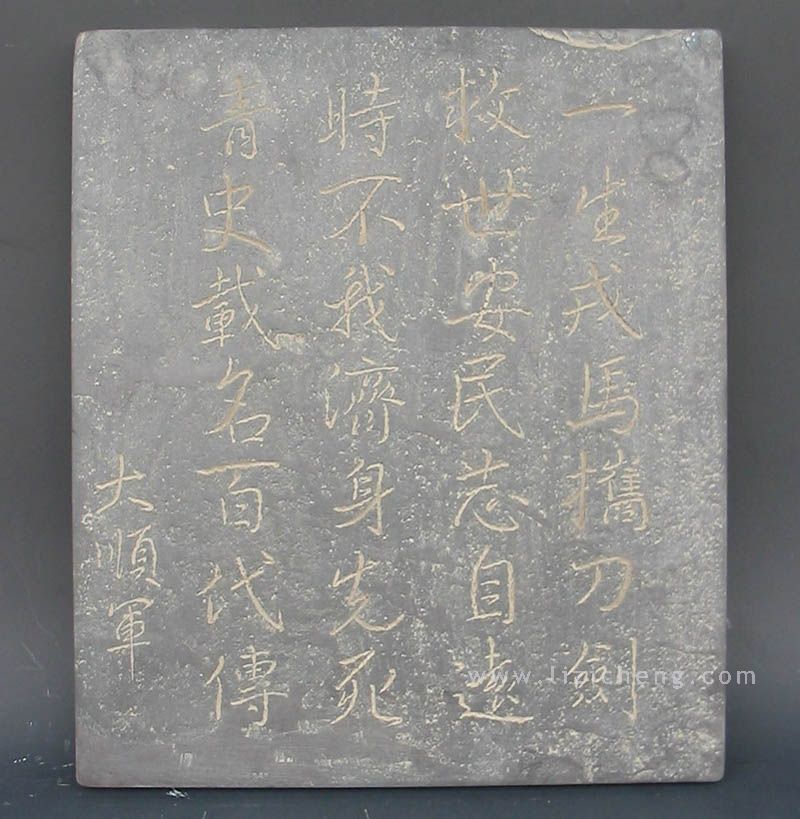 一生戎馬攜刀劍
救世安民志自遠
時不我濟身先死
青史載名百代傳
大順軍
www.liricheng.com